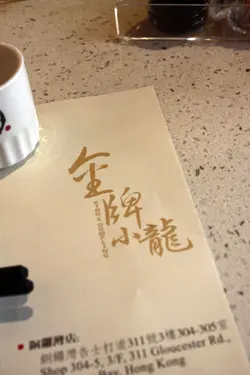 金牌小龍
銅鑼灣店:
銅鑼灣告士打道311號3樓304-305室
Shop 304-5, 3/F, 311 Gloucester Rd.,
Bay, Hong Kong